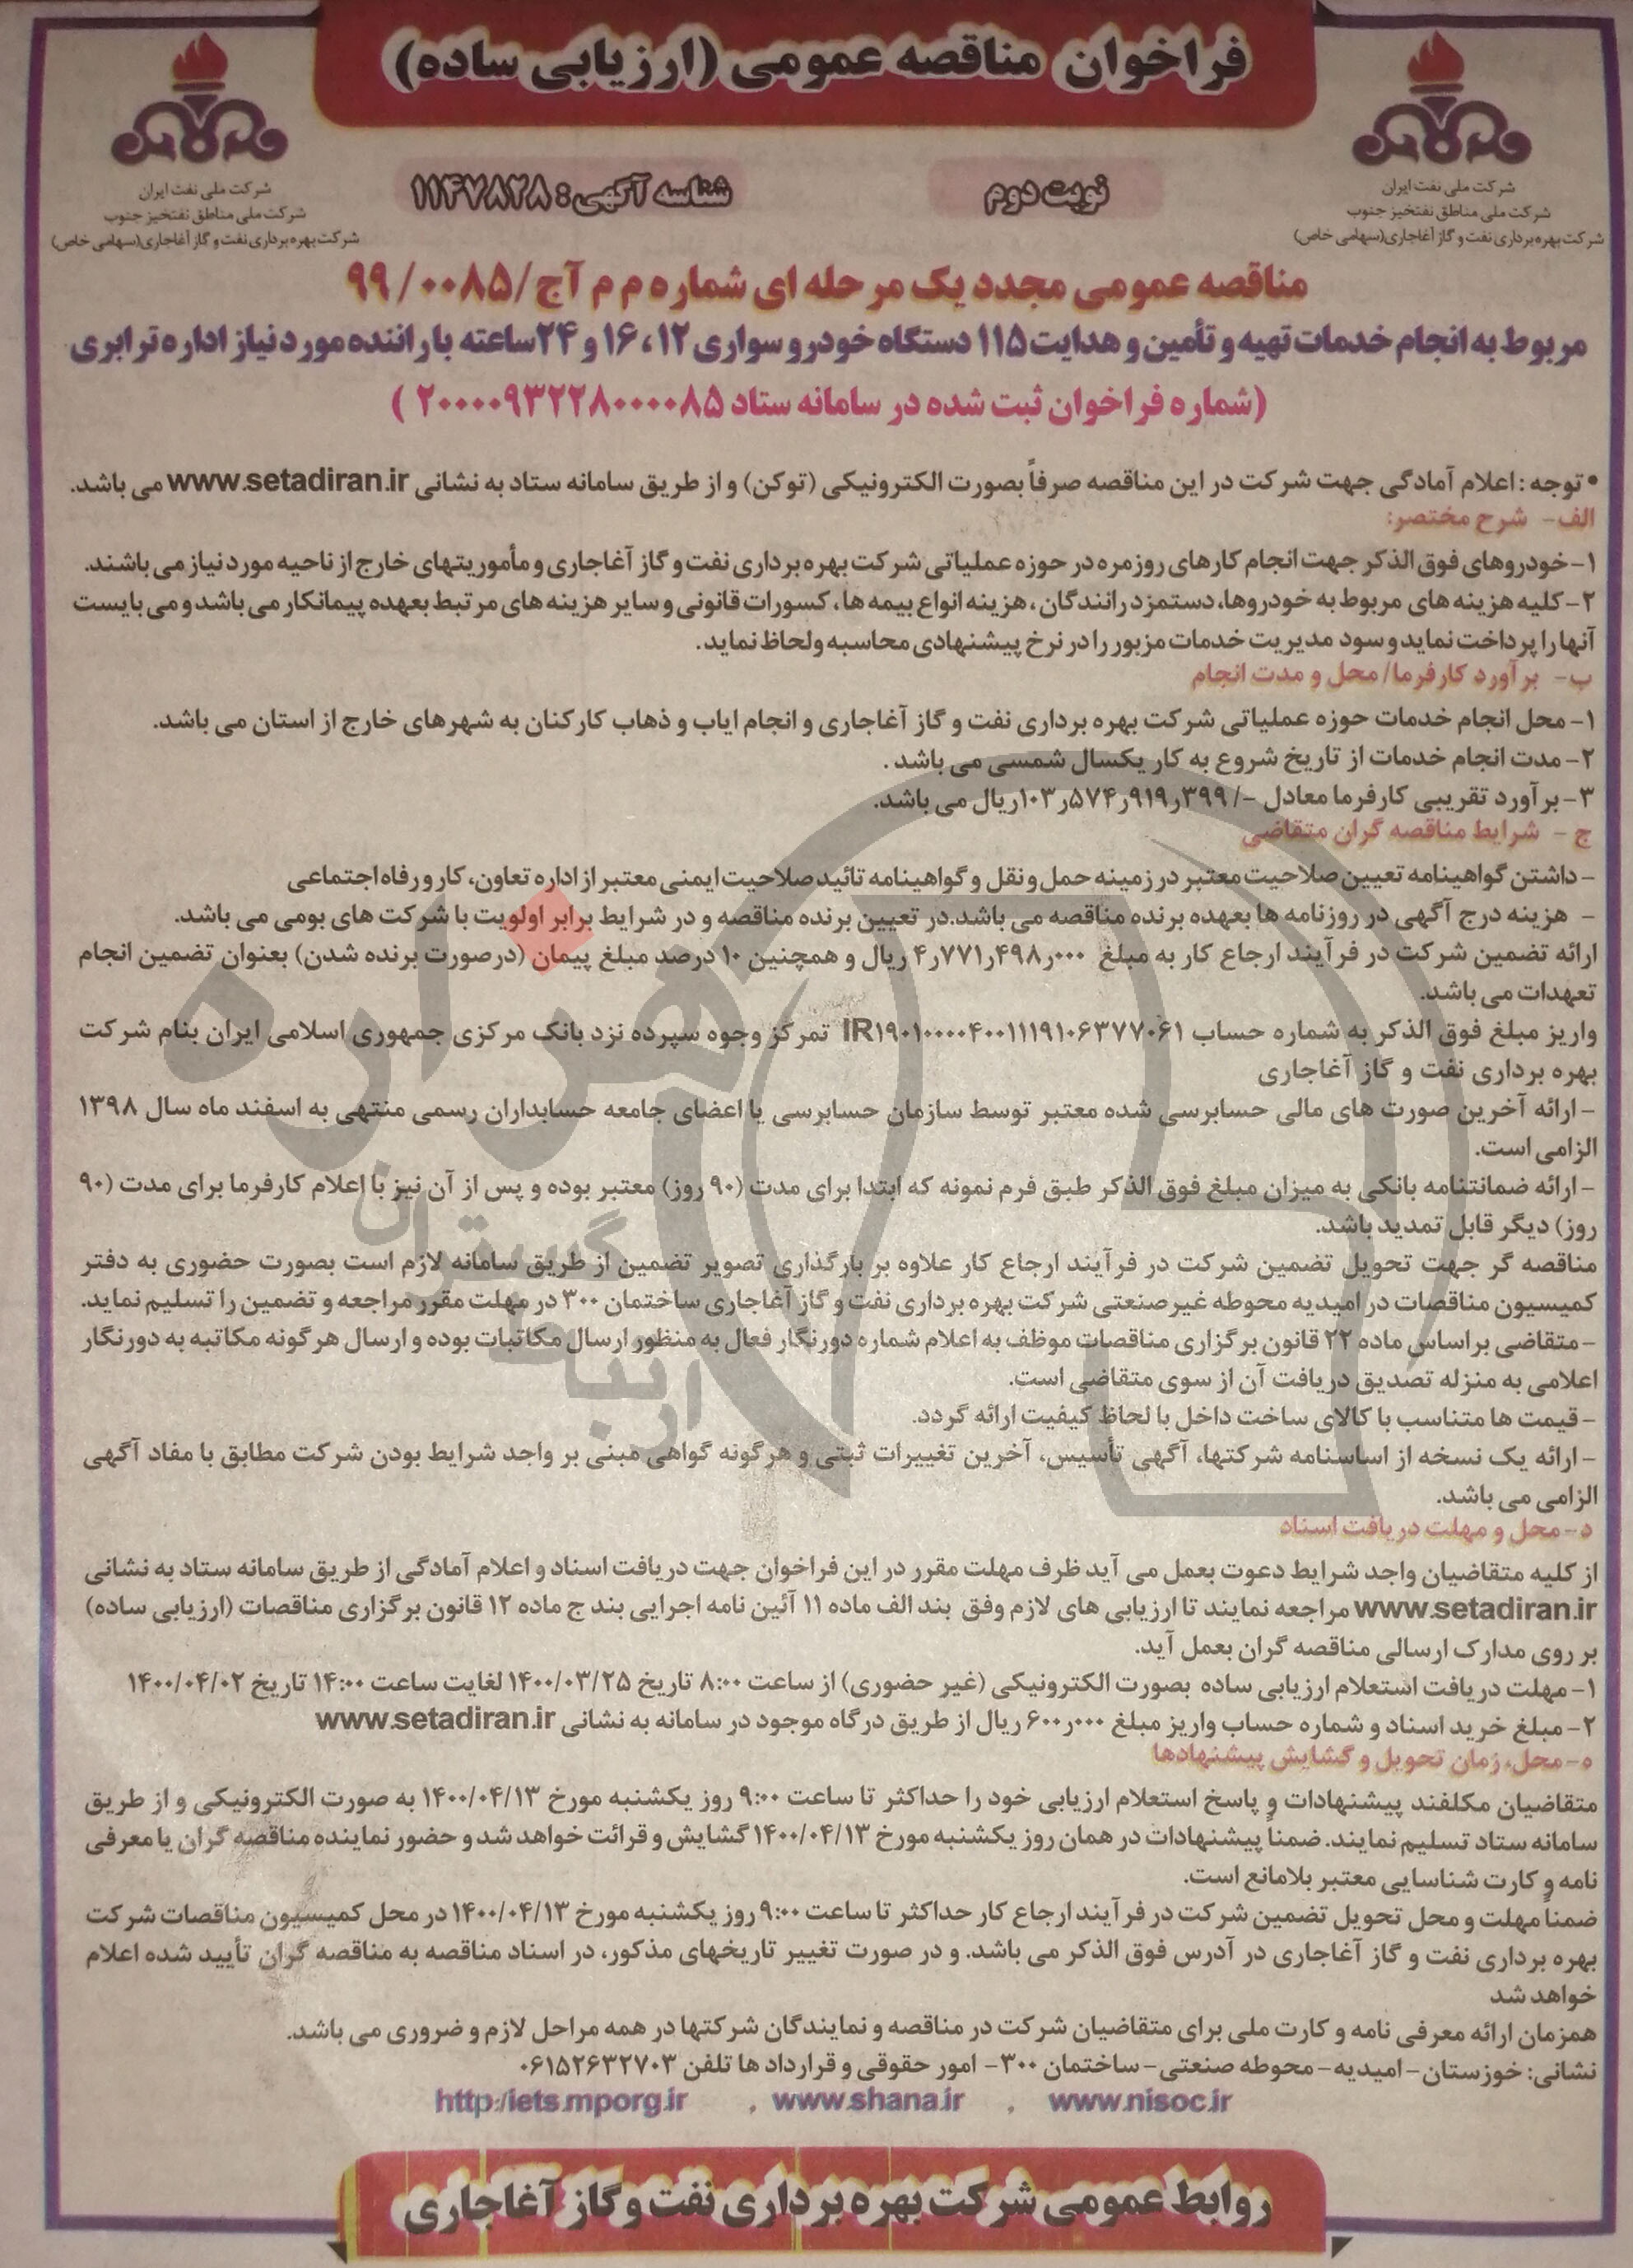 فراخوان مناقصه عمومی (ارزیابی ساده)
شرکت ملی نفت ایران
شرکت ملی مناطق نفتخیز جنوب
شرکت بهره برداری نفت و گاز آغاجاری(سهامی خاص)
نوبت دوم
شناسه آگهی: ۱۱۴۷۸۲۸
شرکت ملی نفت ایران
شرکت ملی مناطق نفتخیز جنوب
شرکت بهره برداری نفت و گاز آغاجاری(سهامی خاص)
مناقصه عمومی مجدد یک مرحله ای شماره م م آج/۰۰۸۵ /۹۹
مربوط به انجام خدمات تهیه و تأمین و هدایت ۱۱۵ دستگاه خودرو سواری ۱۲ ، ۱۶ و ۲۴ساعته با راننده مورد نیاز اداره ترابری
(شماره فراخوان ثبت شده در سامانه ستاد ۲۰۰۰۰۹۳۲۲۸۰۰۰۰۸۵ )
• توجه : اعلام آمادگی جهت شرکت در این مناقصه صرفاً بصورت الکترونیکی (توکن) و از طریق سامانه ستاد به نشانی www.setadiran.ir می باشد.
الف- شرح مختصر:
۱- خودروهای فوق الذکر جهت انجام کارهای روزمره در حوزه عملیاتی شرکت بهره برداری نفت و گاز آغاجاری و مأموریتهای خارج از ناحیه مورد نیاز می باشند.
۲- کلیه هزینه های مربوط به خودروها، دستمزد رانندگان، هزینه انواع بیمه ها، کسورات قانونی و سایر هزینه های مرتبط بعهده پیمانکار می باشد و می بایست
آنها را پرداخت نماید و سود مدیریت خدمات مزبور را در نرخ پیشنهادی محاسبه ولحاظ نماید.
ب- برآورد کارفرما/ محل و مدت انجام
۱- محل انجام خدمات حوزه عملیاتی شرکت بهره برداری نفت و گاز آغاجاری و انجام ایاب و ذهاب کارکنان به شهرهای خارج از استان می باشد.
۲- مدت انجام خدمات از تاریخ شروع به کار یکسال شمسی می باشد .
۳- برآورد تقریبی کارفرما معادل -/ ۳۹۹ر۹۱۹ر۵۷۴ر۱۰۳ریال می باشد.
ج - شرایط مناقصه گران متقاضی
- داشتن گواهینامه تعیین صلاحیت معتبر در زمینه حمل و نقل و گواهینامه تائید صلاحیت ایمنی معتبر از اداره تعاون، کار و رفاه اجتماعی
- هزینه درج آگهی در روزنامه ها بعهده برنده مناقصه می باشد.در تعیین برنده مناقصه و در شرایط برابر اولویت با شرکت های بومی می باشد.
ارائه تضمین شرکت در فرآیند ارجاع کار به مبلغ ۰۰۰ر۴۹۸ر۷۷۱ر۴ ریال و همچنین ۱۰ درصد مبلغ پیمان (درصورت برنده شدن) بعنوان تضمین انجام
تعهدات می باشد.
واریز مبلغ فوق الذکر به شماره حساب IR۱۹۰۱۰۰۰۰۴۰۰۱۱۱۹۱۰۶۳۷۷۰۶۱ تمرکز وجوه سپرده نزد بانک مرکزی جمهوری اسلامی ایران بنام شرکت
بهره برداری نفت و گاز آغاجاری
- ارائه آخرین صورت های مالی حسابرسی شده معتبر توسط سازمان حسابرسی یا اعضای جامعه حسابداران رسمی منتهی به اسفند ماه سال ۱۳۹۸
الزامی است.
- ارائه ضمانتنامه بانکی به میزان مبلغ فوق الذکر طبق فرم نمونه که ابتدا برای مدت (۹۰ روز) معتبر بوده و پس از آن نیز با اعلام کارفرما برای مدت (۹۰
روز) دیگر قابل تمدید باشد.
مناقصه گر جهت تحویل تضمین شرکت در فرآیند ارجاع کار علاوه بر بارگذاری تصویر تضمین از طریق سامانه لازم است بصورت حضوری به دفتر
کمیسیون مناقصات در امیدیه محوطه غیرصنعتی شرکت بهره برداری نفت و گاز آغاجاری ساختمان ۳۰۰ در مهلت مقرر مراجعه و تضمین را تسلیم نماید.
- متقاضی براساس ماده ۲۲ قانون برگزاری مناقصات موظف به اعلام شماره دورنگار فعال به منظور ارسال مکاتبات بوده و ارسال هرگونه مکاتبه به دورنگار
اعلامی به منزله تصدیق دریافت آن از سوی متقاضی است.
- قیمت ها متناسب با کالای ساخت داخل با لحاظ کیفیت ارائه گردد.
- ارائه یک نسخه از اساسنامه شرکتها، آگهی تأسیس، آخرین تغییرات ثبتی و هرگونه گواهی مبنی بر واجد شرایط بودن شرکت مطابق با مفاد آگهی
الزامی می باشد.
د- محل و مهلت دریافت اسناد
از کلیه متقاضیان واجد شرایط دعوت بعمل می آید ظرف مهلت مقرر در این فراخوان جهت دریافت اسناد و اعلام آمادگی از طریق سامانه ستاد به نشانی
www.setadiran.ir مراجعه نمایند تا ارزیابی های لازم وفق بند الف ماده ۱۱ آئین نامه اجرایی بند ج ماده ۱۲ قانون برگزاری مناقصات (ارزیابی ساده)
بر روی مدارک ارسالی مناقصه گران بعمل آید.
۱- مهلت دریافت استعلام ارزیابی ساده بصورت الکترونیکی (غیر حضوری) از ساعت ۸:۰۰ تاریخ ۱۴۰۰/۰۳/۲۵ لغایت ساعت ۱۴:۰۰ تاریخ ۱۴۰۰/۰۴/۰۲
۲- مبلغ خرید اسناد و شماره حساب واریز مبلغ ۰۰۰ر۶۰۰ ریال از طریق درگاه موجود در سامانه به نشانی www.setadiran.ir
ه- محل، زمان تحویل و گشایش پیشنهادها
متقاضیان مکلفند پیشنهادات و پاسخ استعلام ارزیابی خود را حداکثر تا ساعت ۹:۰۰ روز یکشنبه مورخ ۱۴۰۰/۰۴/۱۳ به صورت الکترونیکی و از طریق
سامانه ستاد تسلیم نمایند. ضمناً پیشنهادات در همان روز یکشنبه مورخ ۱۴۰۰/۰۴/۱۳ گشایش و قرائت خواهد شد و حضور نماینده مناقصه گران با معرفی
نامه و کارت شناسایی معتبر بلامانع است.
ضمناً مهلت و محل تحویل تضمین شرکت در فرآیند ارجاع کار حداکثر تا ساعت ۹:۰۰ روز یکشنبه مورخ ۱۴۰۰/۰۴/۱۳ در محل کمیسیون مناقصات شرکت
بهره برداری نفت و گاز آغاجاری در آدرس فوق الذکر می باشد. و در صورت تغییر تاریخهای مذکور، در اسناد مناقصه به مناقصه گران تأیید شده اعلام
خواهد شد
همزمان ارائه معرفی نامه و کارت ملی برای متقاضیان شرکت در مناقصه و نمایندگان شرکتها در همه مراحل لازم و ضروری می باشد.
نشانی: خوزستان- امیدیه- محوطه صنعتی- ساختمان ۳۰۰- امور حقوقی و قرارداد ها تلفن ۰۶۱۵۲۶۳۲۷۰۳
www.nisoc.ir , www.shana.ir , http:/iets.mporg.ir
روابط عمومی شرکت بهره برداری نفت و گاز آغاجاری
هزاره
ارتباط گستران